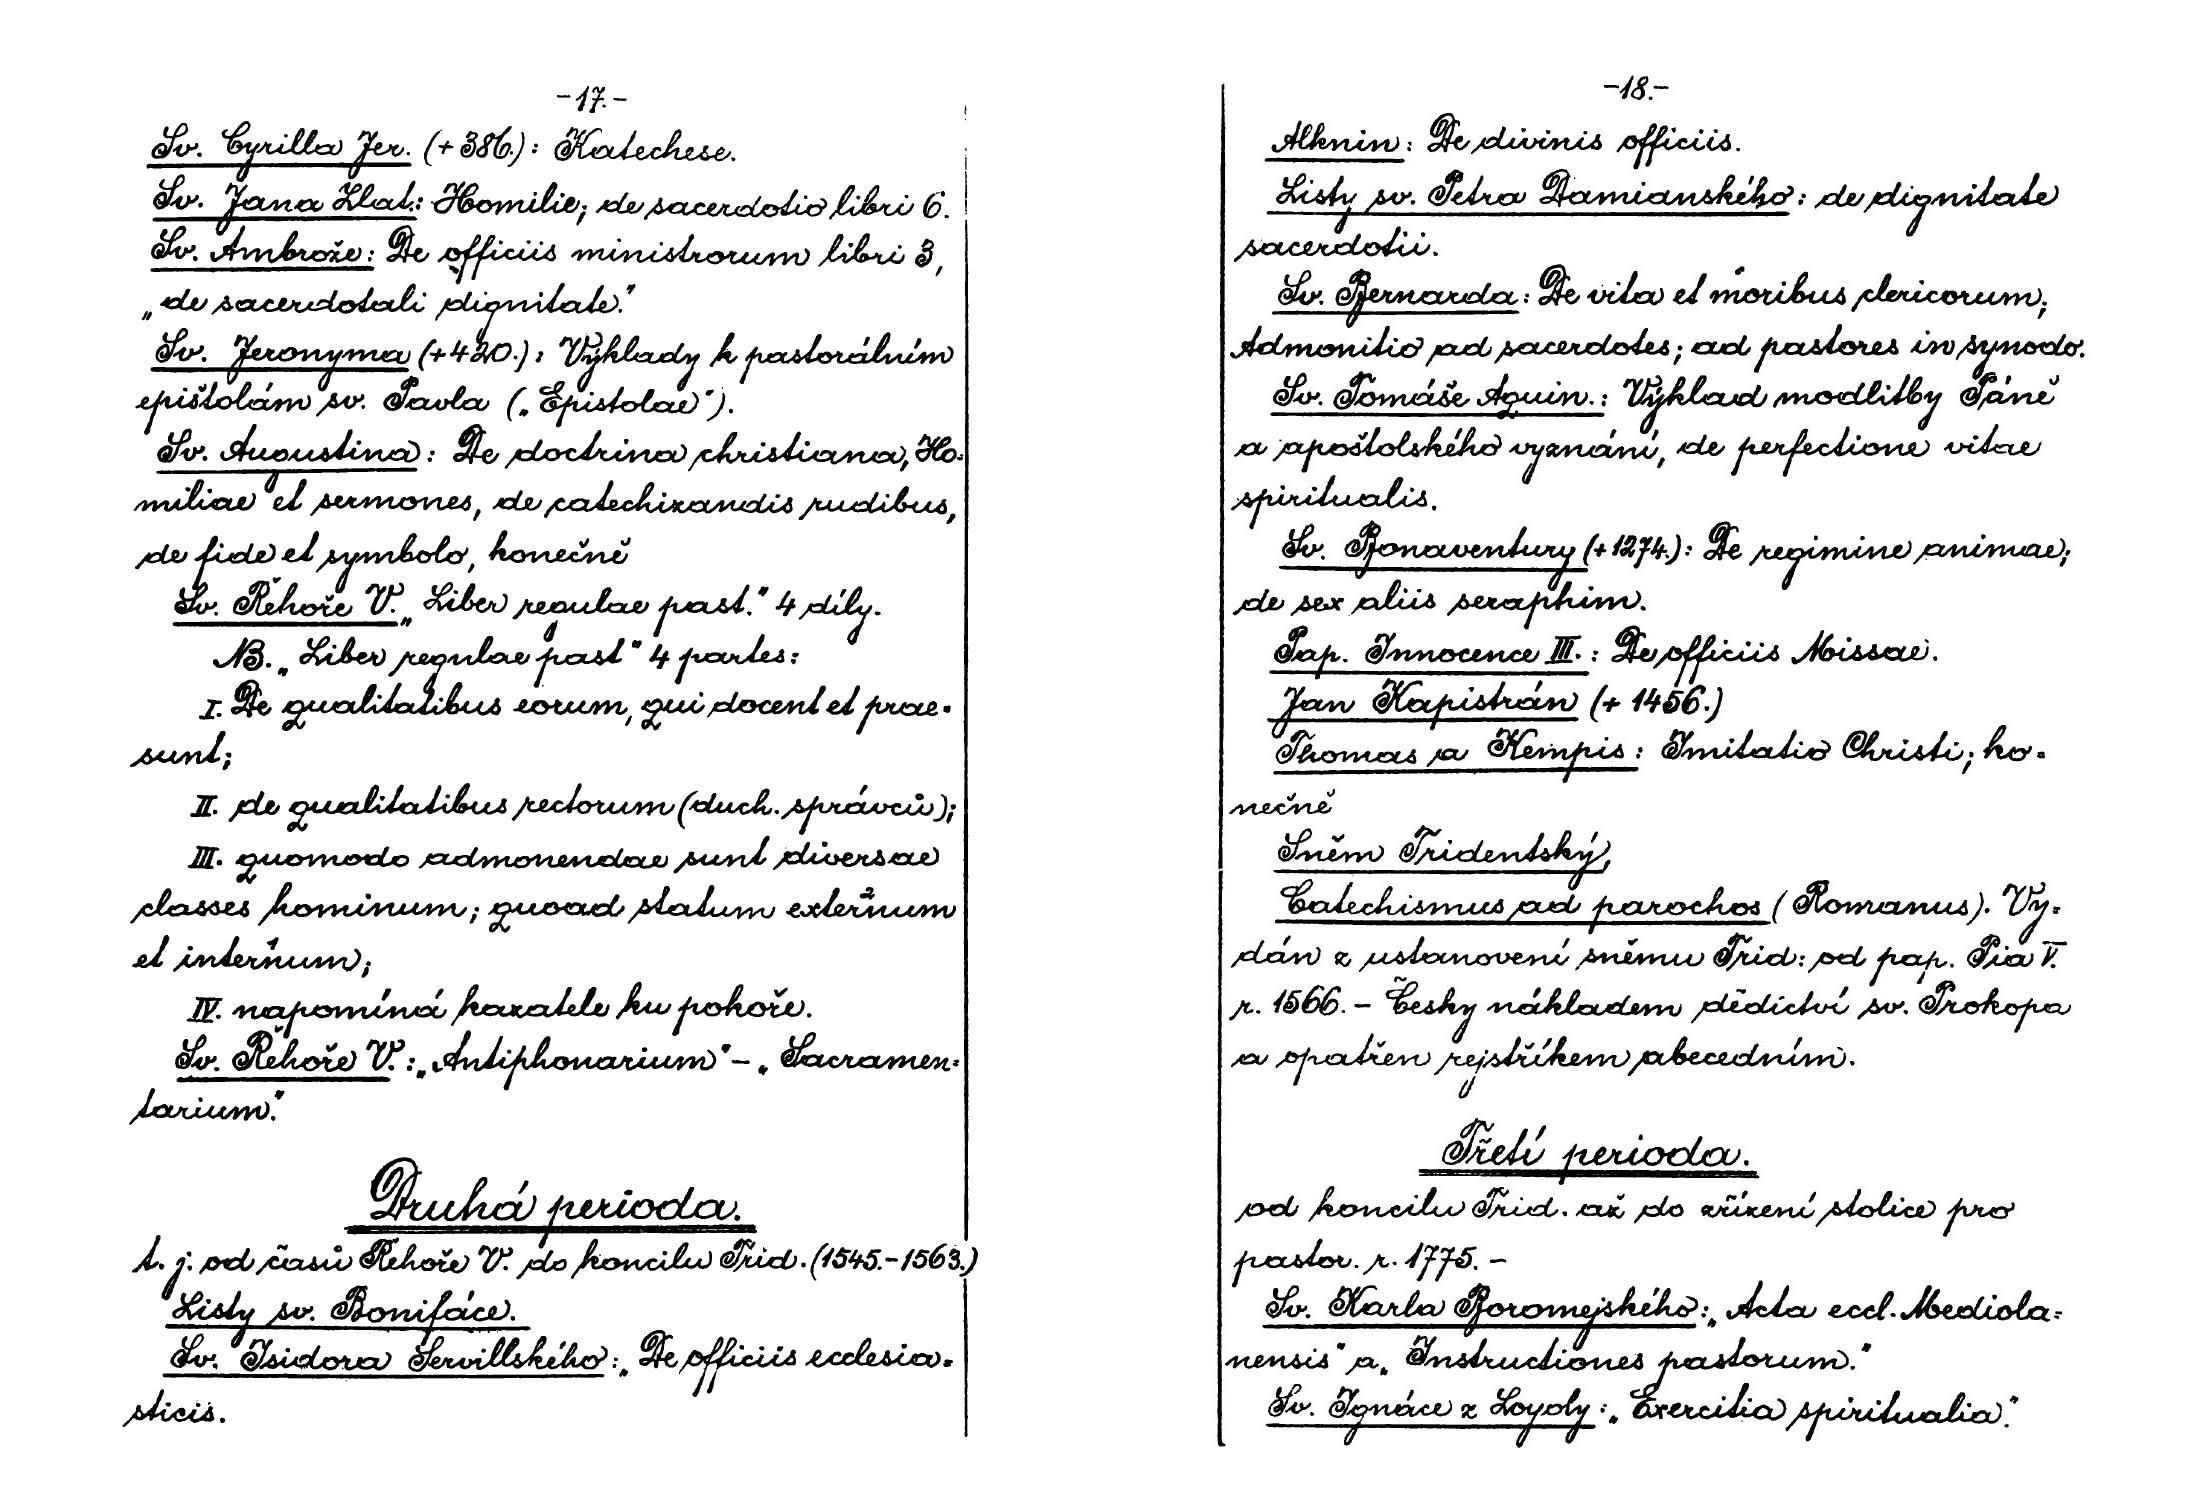 -17.-
Sv. Cyrilla Jer. (+386.): Katechese.
Sv. Jana Zlat.: Homilie; de sacerdotio libri 6.
Sv. Ambrože: De officiis ministrorum libri 3,
„de sacerdotali dignitate."
Sv. Jeronyma (+420.): Výklady k pastorálním
epištolám sv. Pavla („Epistolae").
Sv. Augustina: De doctrina christiana, Ho-
miliae et sermones, de catechizandis rudibus,
de fide et symbolo, konečně
Sv. Řehoře V. „Liber regulae past." 4 díly.
NB. „Liber regulae past" 4 partes:
I. De qualitatibus eorum, qui docent et prae-
sunt;
II. de qualitatibus rectorum (duch. správců);
III. quomodo admonendae sunt diversae
classes hominum; quoad statum externum
et internum;
IV. napomíná kazatele ku pokoře.
Sv. Řehoře V.: „Antiphonarium" – „Sacramen-
tarium".
Druhá perioda.
t. j. od časů Řehoře V. do koncilu Trid. (1545.-1563.)
Listy sv. Bonifáce.
Sv. Isidora Servillského: „De officiis ecclesia-
sticis.
-18.-
Alknin: De divinis officiis.
Listy sv. Petra Damianského: de dignitate
sacerdotii.
Sv. Bernarda: De vita et moribus clericorum;
Admonitio ad sacerdotes; ad pastores in synodo.
Sv. Tomáše Aquin.: Výklad modlitby Páně
a apoštolského vyznání, de perfectione vitae
spiritualis.
Sv. Bonaventury (+1274.): De regimine animae;
de sex aliis seraphim.
Pap. Innocence III.: De officiis Missae.
Jan Kapistrán (+ 1456.)
Thomas a Kempis: Imitatio Christi; ko-
nečně
Sněm Tridentský,
Catechismus ad parochos (Romanus). Vy-
dán z ustanovení sněmu Trid: od pap. Pia V.
r. 1566. – Česky nákladem dědictví sv. Prokopa
a opatřen rejstříkem abecedním.
Třetí perioda.
od koncilu Trid. až do zřízení stolice pro
pastor. r. 1775. –
Sv. Karla Boromejského: „Acta eccl. Mediola-
nensis" a „Instructiones pastorum."
Sv. Ignáce z Loyoly: „Exercitia spiritualia".